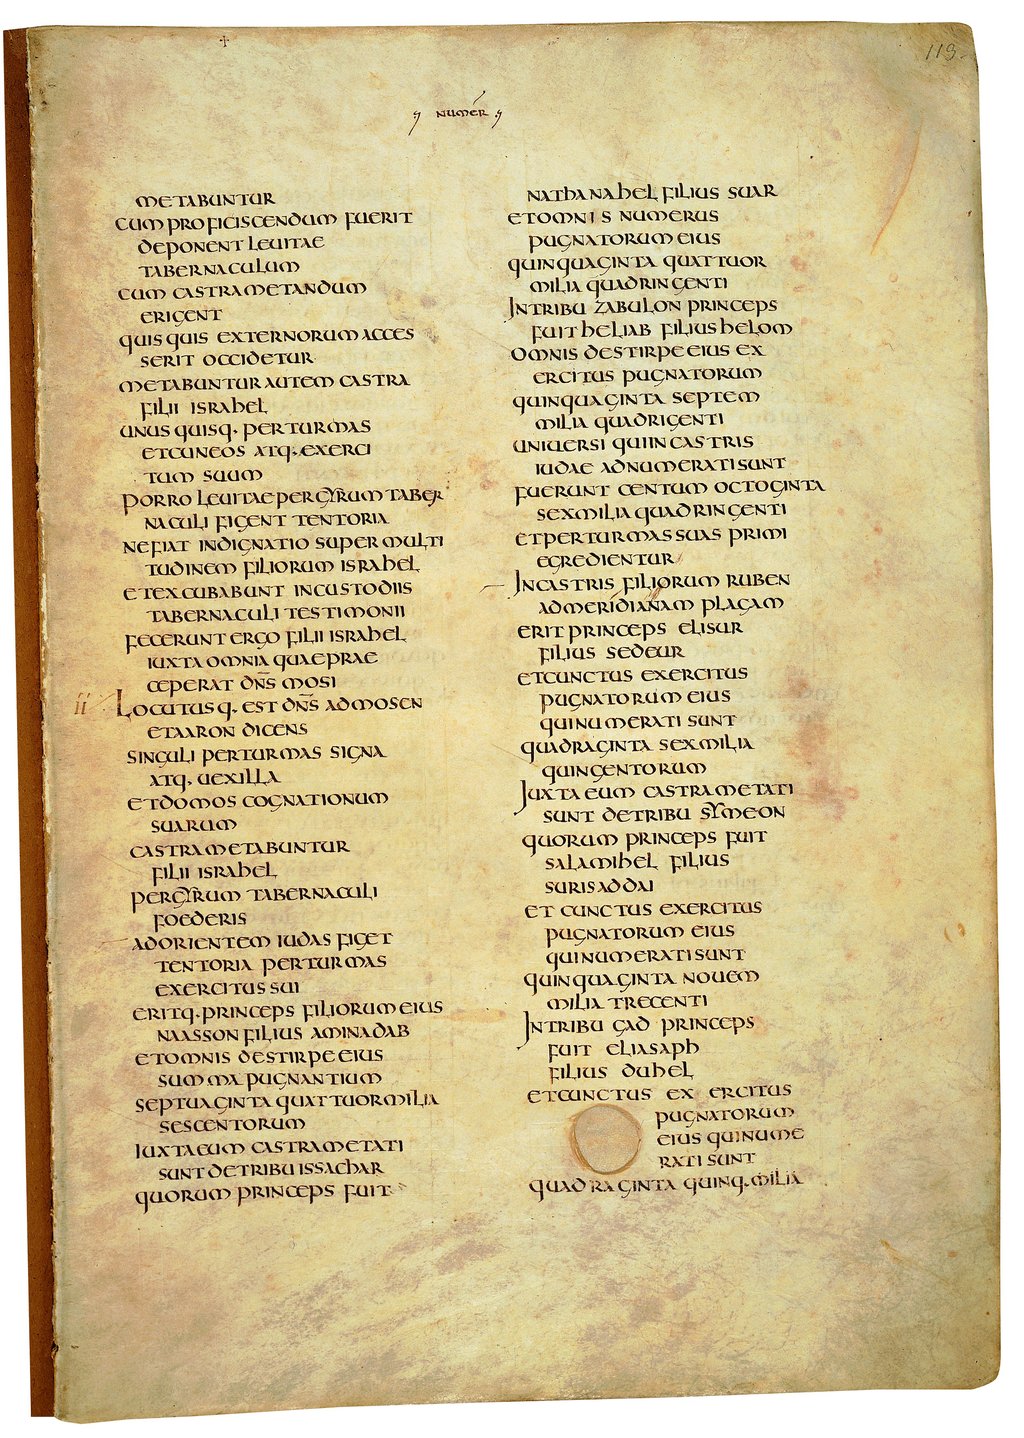 113
NUMER
METABUNTUR
CUM PROFICISCENDUM FUERIT
DEPONENT LEUITAE
TABERNACULUM
CUM CASTRAMETANDUM
ERIGENT
QUISQUIS EXTERNORUM ACCES
SERIT OCCIDETUR
METABUNTUR AUTEM CASTRA
FILII ISRAHEL
UNUSQUISQ· PER TURMAS
ET CUNEOS ATQ· EXERCI
TUM SUUM
PORRO LEUITAE PER GYRUM TABER
NACULI FIGENT TENTORIA
NE FIAT INDIGNATIO SUPER MULTI
TUDINEM FILIORUM ISRAHEL
ET EXCUBABUNT IN CUSTODIIS
TABERNACULI TESTIMONII
FECERUNT ERGO FILII ISRAHEL
IUXTA OMNIA QUAE PRAE
CEPERAT DN̅S MOSI
ii LOCUTUSQ· EST DN̅S AD MOSEN
ET AARON DICENS
SINGULI PER TURMAS SIGNA
ATQ· UEXILLA
ET DOMOS COGNATIONUM
SUARUM
CASTRAMETABUNTUR
FILII ISRAHEL
PER GYRUM TABERNACULI
FOEDERIS
AD ORIENTEM IUDAS FIGET
TENTORIA PER TURMAS
EXERCITUS SUI
ERITQ· PRINCEPS FILIORUM EIUS
NAASSON FILIUS AMINADAB
ET OMNIS DE STIRPE EIUS
SUMMA PUGNANTIUM
SEPTUAGINTA QUATTUOR MILIA
SESCENTORUM
IUXTA EUM CASTRAMETATI
SUNT DE TRIBU ISSACHAR
QUORUM PRINCEPS FUIT
NATHANAHEL FILIUS SUAR
ET OMNIS NUMERUS
PUGNATORUM EIUS
QUINQUAGINTA QUATTUOR
MILIA QUADRINGENTI
IN TRIBU ZABULON PRINCEPS
FUIT HELIAB FILIUS HELOM
OMNIS DE STIRPE EIUS EX
ERCITUS PUGNATORUM
QUINQUAGINTA SEPTEM
MILIA QUADRIGENTI
UNIUERSI QUI IN CASTRIS
IUDAE ADNUMERATI SUNT
FUERUNT CENTUM OCTOGINTA
SEX MILIA QUADRINGENTI
ET PER TURMAS SUAS PRIMI
EGREDIENTUR
IN CASTRIS FILIORUM RUBEN
AD MERIDIANAM PLAGAM
ERIT PRINCEPS ELISUR
FILIUS SEDEUR
ET CUNCTUS EXERCITUS
PUGNATORUM EIUS
QUI NUMERATI SUNT
QUADRAGINTA SEX MILIA
QUINGENTORUM
IUXTA EUM CASTRAMETATI
SUNT DE TRIBU SYMEON
QUORUM PRINCEPS FUIT
SALAMIHEL FILIUS
SURISADDAI
ET CUNCTUS EXERCITUS
PUGNATORUM EIUS
QUI NUMERATI SUNT
QUINQUAGINTA NOUEM
MILIA TRECENTI
IN TRIBU GAD PRINCEPS
FUIT ELIASAPH
FILIUS DUHEL
ET CUNCTUS EXERCITUS
PUGNATORUM
EIUS QUI NUME
RATI SUNT
QUADRAGINTA QUINQ· MILIA